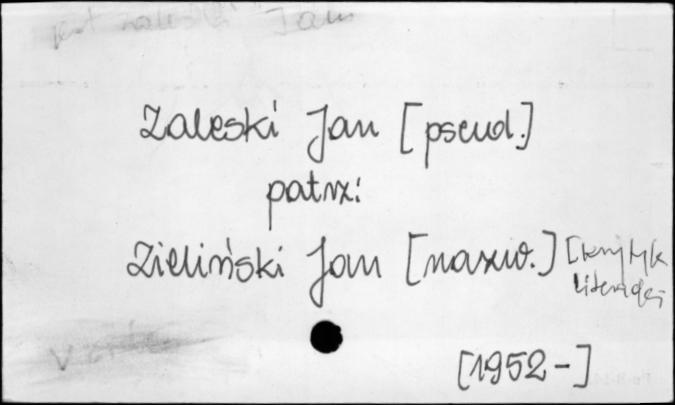 Zaleski Jan [pseud.]
patrz:
Zieliński Jan [nazw.] [krytyk
literacki
[1952-]